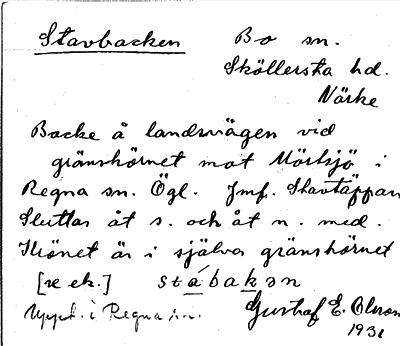 Stavbacken Bo sn.
Sköllersta hd.
Närke
Backe å landsvägen vid
gränshörnet mot Mörtsjö i
Regna sn. Ögl. Jmf. Skavtäppan.
Sluttar åt s. och åt n. med.
Krönet är i själva gränshörnet
[se ek.] stábakǝn
Uppt. i Regna sn. Gustaf E. Olsson
1931